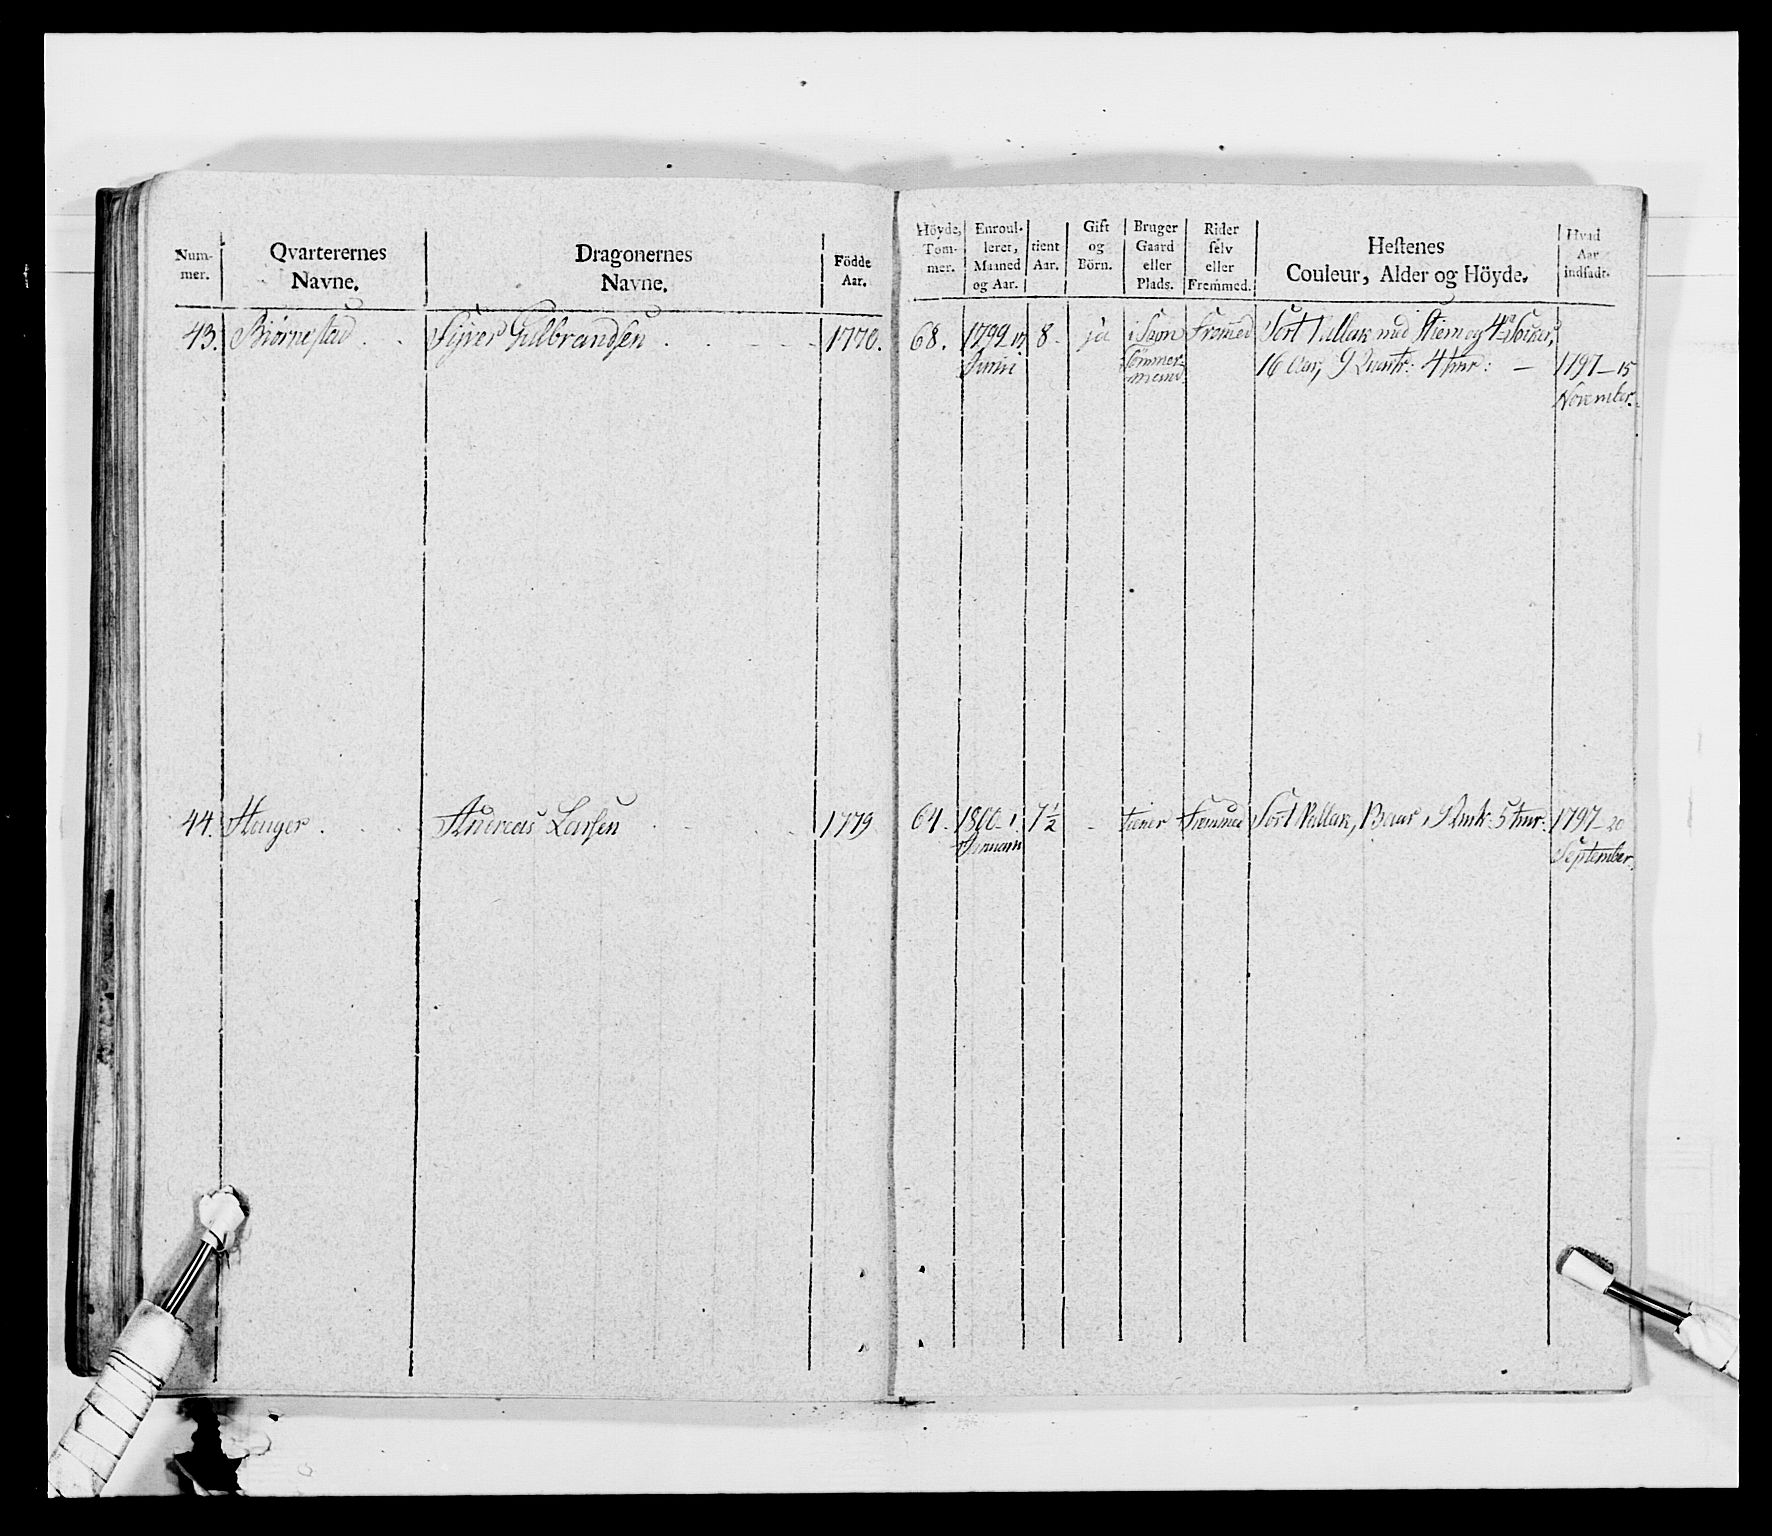 Num-
mer.
Qvarterernes
Navne.
Dragonernes
Navne.
Födde
Aar.
Höyde,
Tom-
mer.
Enroul-
leret,
Maaned
og Aar.
tient
Aar.
Gift
og
Börn.
Bruger
Gaard
eller
Plads.
Rider
selv
eller
Fremmed.
Hestenes
Couleur, Alder og Höyde.
Hvad
Aar
indsadt.
43. Biørnestad Syver Gulbrandsen 1770. 68. 1792 17 8. ja Fremed Sort Vallak med Stiern og 4re Socker,
Junii 16 Aar, 9 Quartr: 4 tmr: — 1797 – 15
November.
44. Houger Andreas Larsen 1779 64. 1800 1. 7½ - tiener Fremmed Sort Vallak, 5 tmr: 1797 – 20
Januarii September.